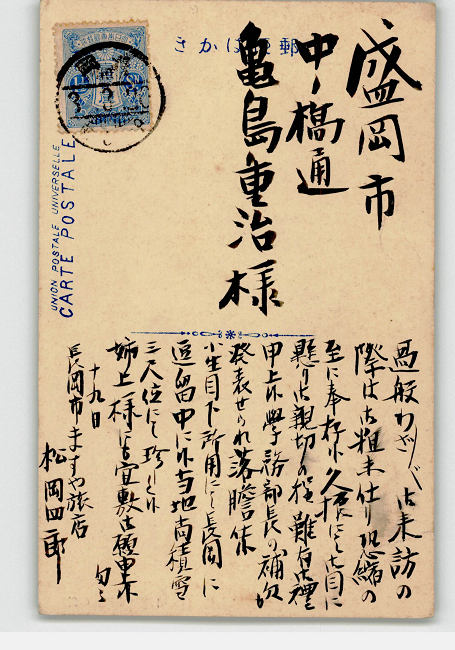 郵便はかき
盛岡市
中ノ橋通
亀島重治様
UNION POSTALE UNIVERSELLE
CARTE POSTALE
過般わざ〱御来訪の
際は御粗末仕り恐縮の
至に奉存候久振にて御目に
懸り御親切の程難有御礼
申上候學務部長の補次
発表せられ落膽候
小生目下所用にて長岡に
逗留中に候当地尚積雪
三尺位にて珍しく候
姉上様にも宜敷御願申候
匆々
十九日
長岡市ますや旅店
松岡四郎